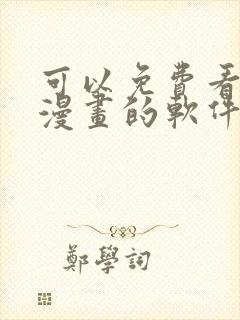 可以免費看
漫畫的軟件
鄭學詞